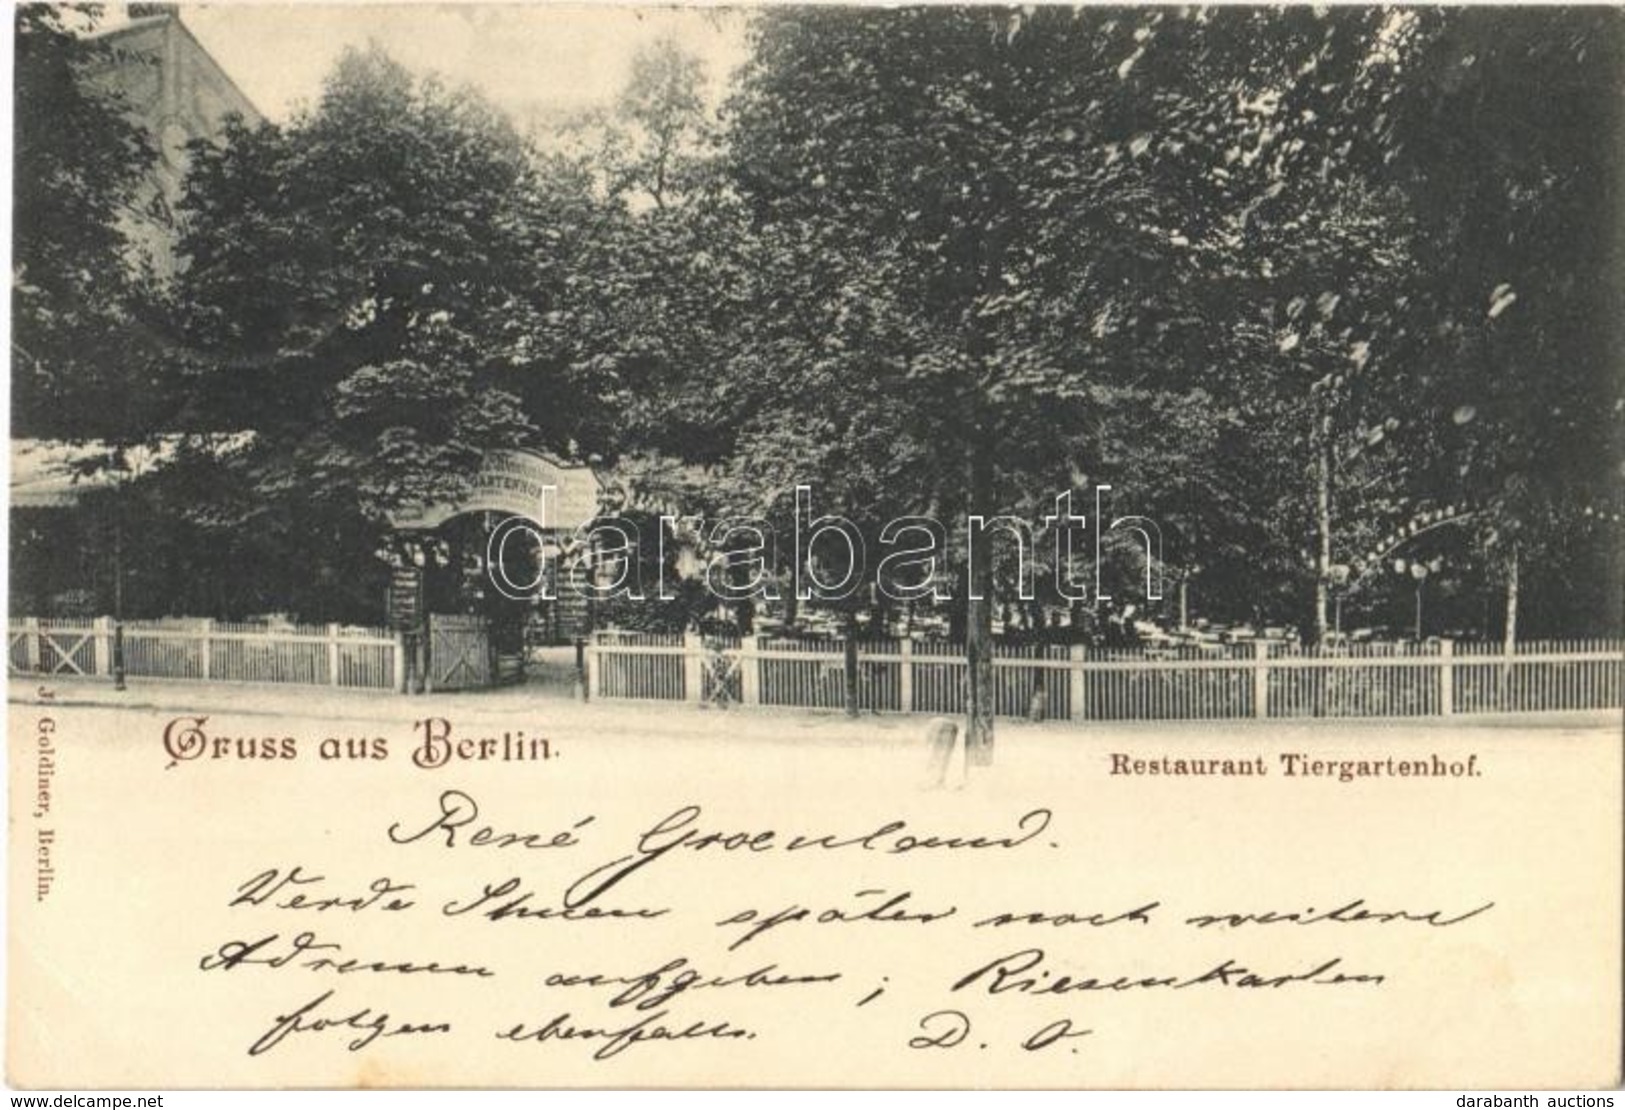 GARTENHOF
darabanth
Gruss aus Berlin.
Restaurant Tiergartenhof.
J. Goldiner, Berlin.
René Groenland.
Werde Ihnen später noch weitere
Adressen aufgeben; Riesenkarten
folgen ebenfalls. D. O.
www.delcampe.net
darabanth auctions